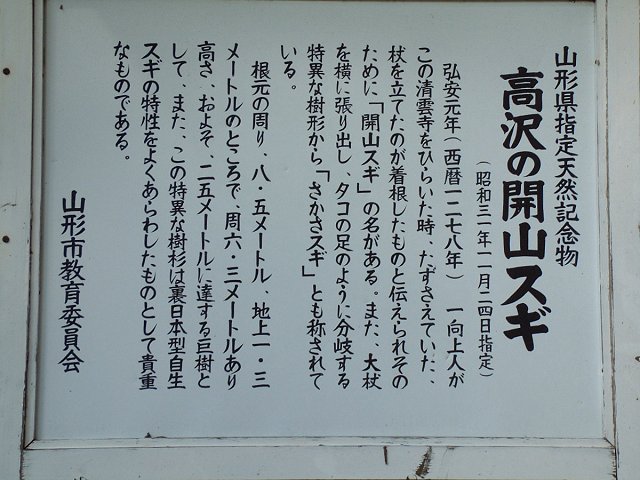 山形県指定天然記念物
高沢の開山スギ
（昭和三一年一一月二四日指定）
弘安元年（西暦一二七八年）　一向上人が
この清雲寺をひらいた時、たずさえていた、
杖を立てたのが着根したものと伝えられその
ために「開山スギ」の名がある。また、大枝
を横に張り出し、タコの足のように分岐する
特異な樹形から「さかさスギ」とも称されて
いる。
根元の周り、八・五メートル、地上一・三
メートルのところで、周六・三メートルあり
高さ、およそ、二五メートルに達する巨樹と
して、また、この特異な樹杉は裏日本型自生
スギの特性をよくあらわしたものとして貴重
なものである。
山形市教育委員会